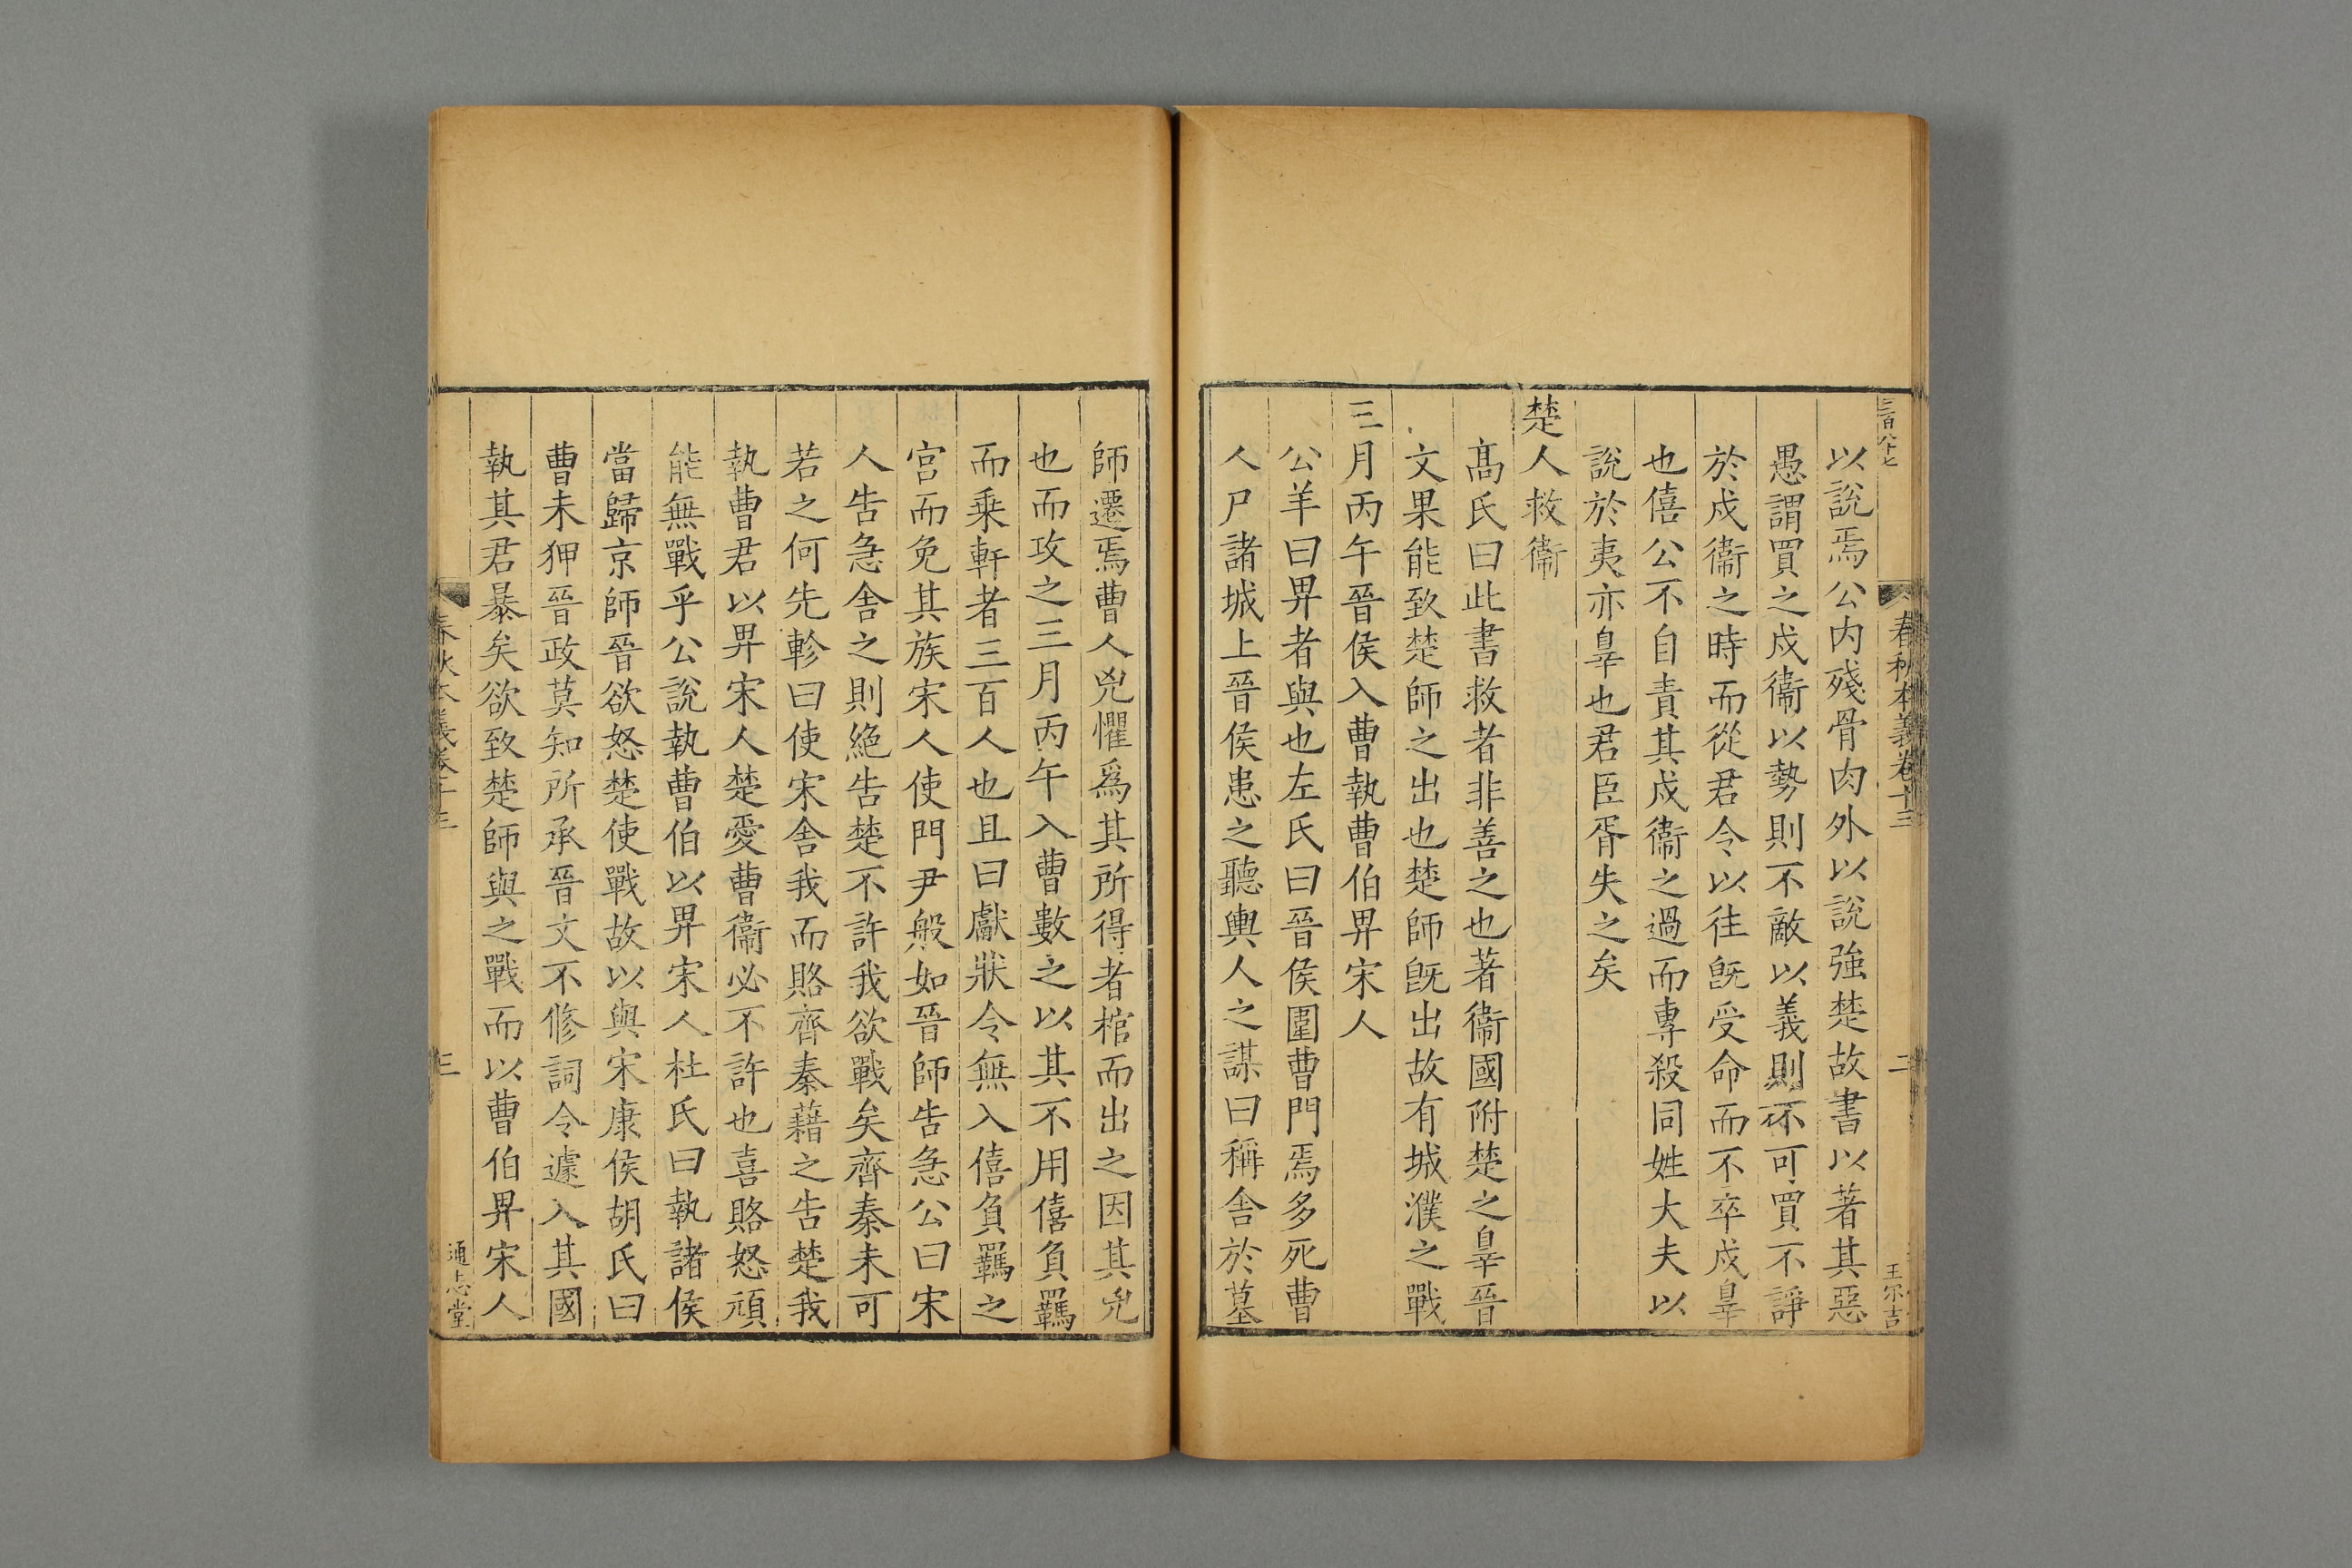 三百八十七
春秋本義卷十三
二
王宗吉
以說焉公内殘骨肉外以說強楚故書以著其惡
愚謂買之戍衞以勢則不敵以義則不可買不諍
於戍衞之時而從君令以往旣受命而不卒戍辠
也僖公不自責其戍衞之過而專殺同姓大夫以
說於夷亦辠也君臣胥失之矣
楚人救衞
髙氏曰此書救者非善之也著衞國附楚之辠晉
文果能致楚師之出也楚師旣出故有城濮之戰
三月丙午晉侯入曹執曹伯畀宋人
公羊曰畀者與也左氏曰晉侯圍曹門焉多死曹
人尸諸城上晉侯患之聽輿人之謀曰稱舍於墓
師遷焉曹人兇懼爲其所得者棺而出之因其兇
也而攻之三月丙午入曹數之以其不用僖負羈
而乗軒者三百人也且曰獻狀令無入僖負羈之
宫而免其族宋人使門尹般如晉師告急公曰宋
人告急舍之則絶告楚不許我欲戰矣齊秦未可
若之何先軫曰使宋舍我而賂齊秦藉之告楚我
執曹君以畀宋人楚愛曹衞必不許也喜賂怒頑
能無戰乎公說執曹伯以畀宋人杜氏曰執諸侯
當歸京師晉欲怒楚使戰故以與宋康侯胡氏曰
曹未狎晉政莫知所承晉文不修詞令遽入其國
執其君暴矣欲致楚師與之戰而以曹伯畀宋人
春秋本義卷十三
三
通志堂